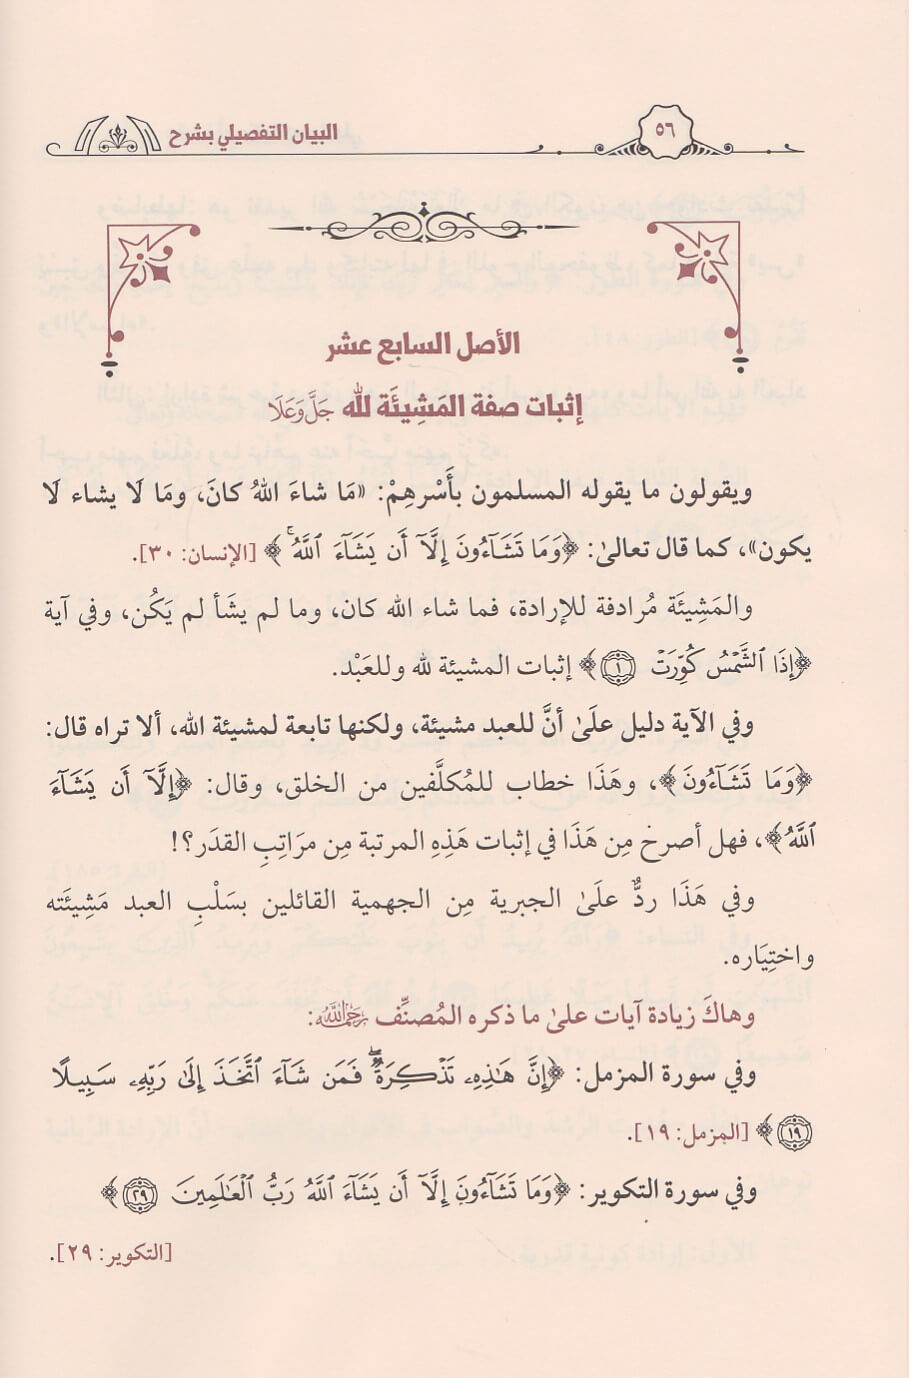 ٥٦
البيان التفصيلي بشرح
الأصل السابع عشر
إثبات صفة المَشِيئَة لله جَلَّ وَعَلَا
ويقولون ما يقوله المسلمون بأَسْرِهِمْ: «مَا شاءَ اللهُ كانَ، ومَا لَا يشاء لَا
يكون»، كما قال تعالىٰ: ﴿وَمَا تَشَآءُونَ إِلَّآ أَن يَشَآءَ ٱللَّهُۚ﴾ [الإنسان: ٣٠].
والمَشِيئَة مُرادفة للإرادة، فما شاء الله كان، وما لم يشَأ لم يَكُن، وفي آية
﴿إِذَا ٱلشَّمۡسُ كُوِّرَتۡ ١﴾ إثبات المشيئة لله وللعَبْد.
وفي الآية دليل علَىٰ أنَّ للعبد مشيئة، ولكنها تابعة لمشيئة الله، ألا تراه قال:
﴿وَمَا تَشَآءُونَ﴾، وهَذَا خطاب للمُكلَّفين من الخلق، وقال: ﴿إِلَّآ أَن يَشَآءَ
ٱللَّهُ﴾، فهل أصرخ مِن هَذَا في إثبات هَذِهِ المرتبة مِن مرَاتِبِ القدَر؟!
وفي هَذَا ردٌّ علَىٰ الجبرية مِن الجهمية القائلين بسَلْبِ العبد مَشِيئَته
واختِيَاره.
وهاكَ زيادة آيات علىٰ ما ذكره المُصنِّف رَحِمَهُ اللَّهُ:
وفي سورة المزمل: ﴿إِنَّ هَٰذِهِۦ تَذۡكِرَةٞۖ فَمَن شَآءَ ٱتَّخَذَ إِلَىٰ رَبِّهِۦ سَبِيلًا
١٩﴾ [المزمل: ١٩].
وفي سورة التكوير: ﴿وَمَا تَشَآءُونَ إِلَّآ أَن يَشَآءَ ٱللَّهُ رَبُّ ٱلۡعَٰلَمِينَ ٢٩﴾
[التكوير: ٢٩].